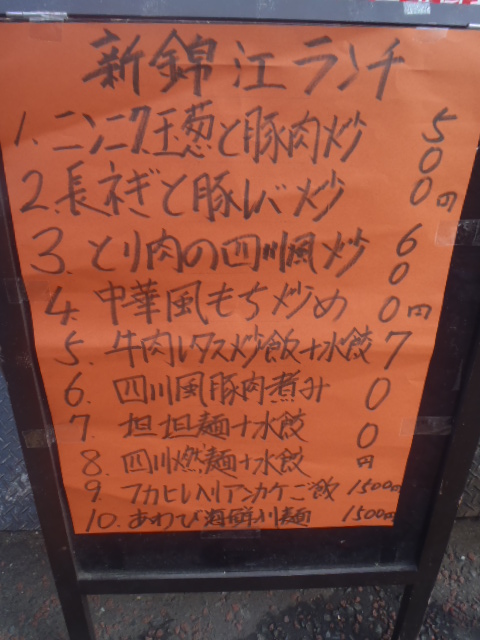 新錦江ランチ
1.ニンニク玉葱と豚肉炒
2.長ネぎと豚レバ炒
500円
3.とり肉の四川風炒
4.中華風もち炒め
600円
5.牛肉レタス炒飯+水餃
6.四川風豚肉煮み
7.坦坦麺+水餃
8.四川燃麺+水餃
700円
9.フカヒレ入りアンカケご飯 1500円
10.あわび海鮮入り麺 1500円